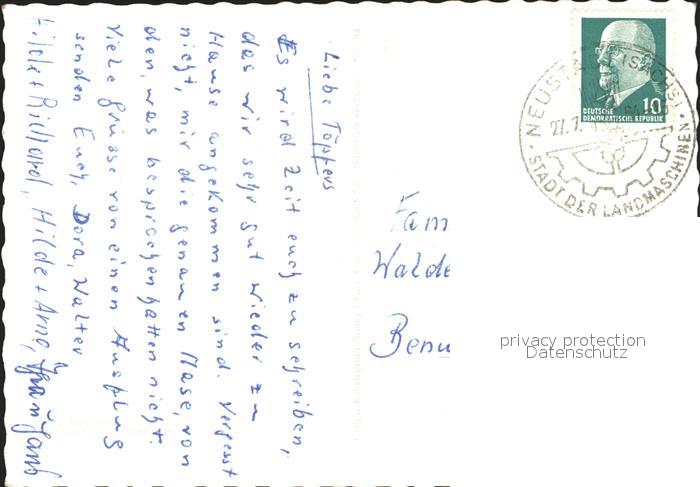 Liebe Töppers
Es wird Zeit euch zu schreiben,
das wir sehr gut wieder zu
Hause angekommen sind. Vergesst
nicht, mir die genauen Mase, von
den, was besprochen hatten nicht.
Viele Grüsse von einen Ausflug
senden Euch, Dora, Walter
Hilde + Richard, Hilde + Arno,
Fam
Walde
Benu
NEUSTADT (SACHS)
27.7.
STADT DER LANDMASCHINEN
10
DEUTSCHE
DEMOKRATISCHE REPUBLIK
privacy protection
Datenschutz